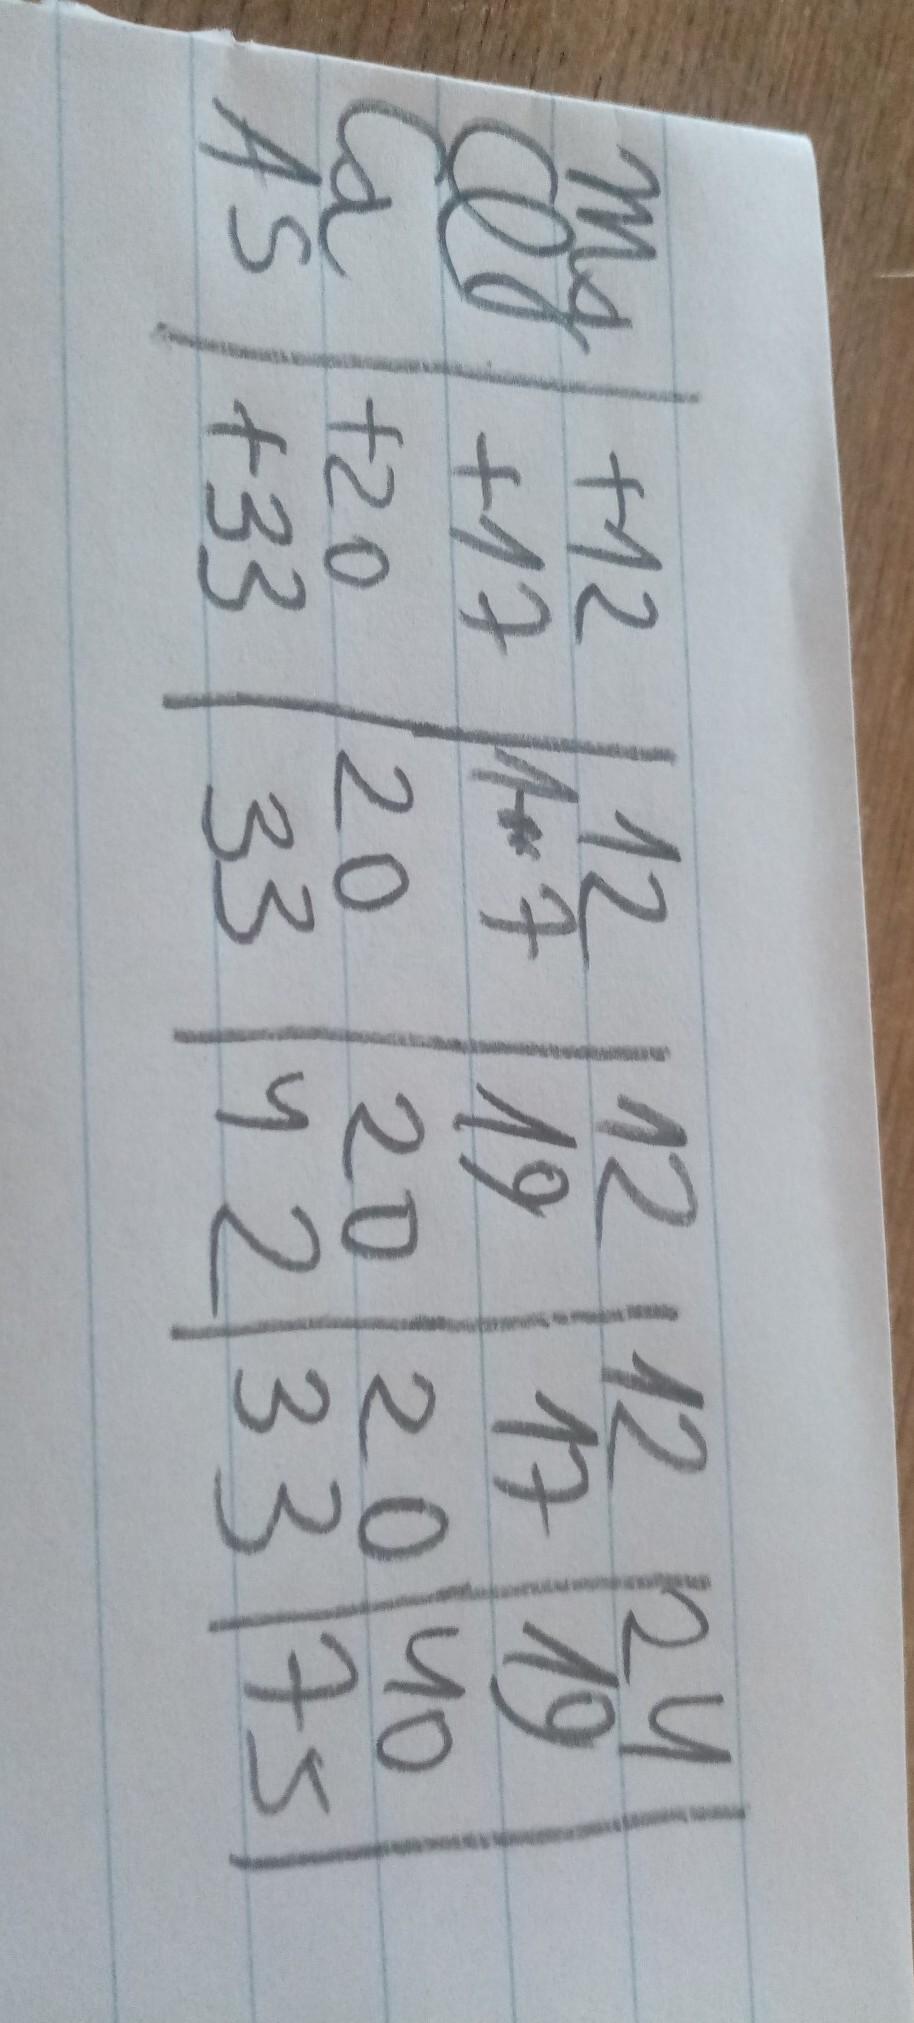 Mg | +12 | 12 | 12 | 12 | 24
+17 | 17 | 19 | 17 | 19
Ca | +20 | 20 | 20 | 20 | 40
AS | +33 | 33 | 42 | 33 | 75